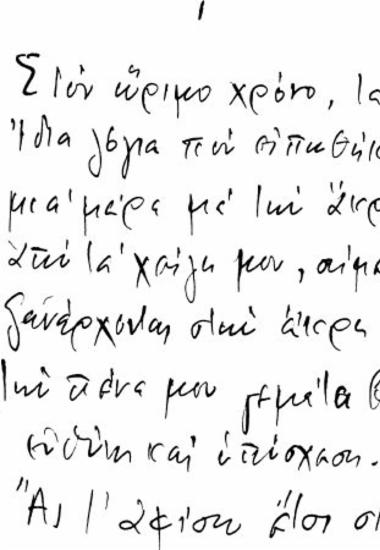 Στὸν ὥριμο χρόνο, τὰ
ἴδια λόγια ποὺ
μιὰ μέρα μὲ τὴν ἄκρ
ἀπὸ τὰ χείλη μου,
ξανάρχονται στὴν ἄκρη
τὴν πένα μου γεμάτα
εὐθύνη καὶ ὑπόσχεση.
Ἂς τ' ἀφίσω ἔτσι